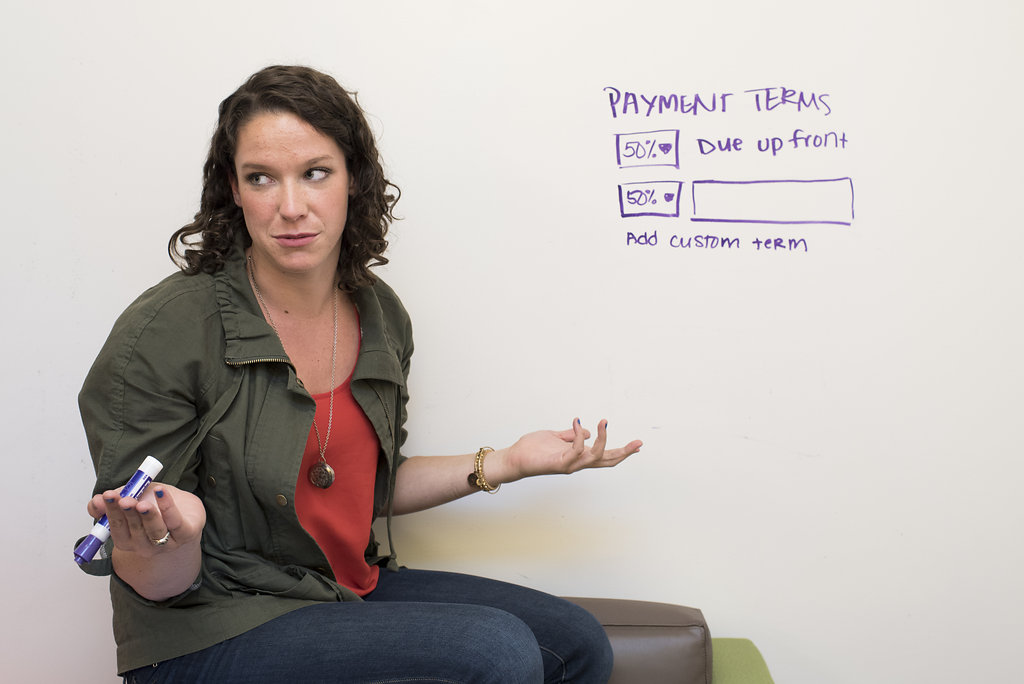 PAYMENT TERMS
50% Due upfront
50%
Add custom term